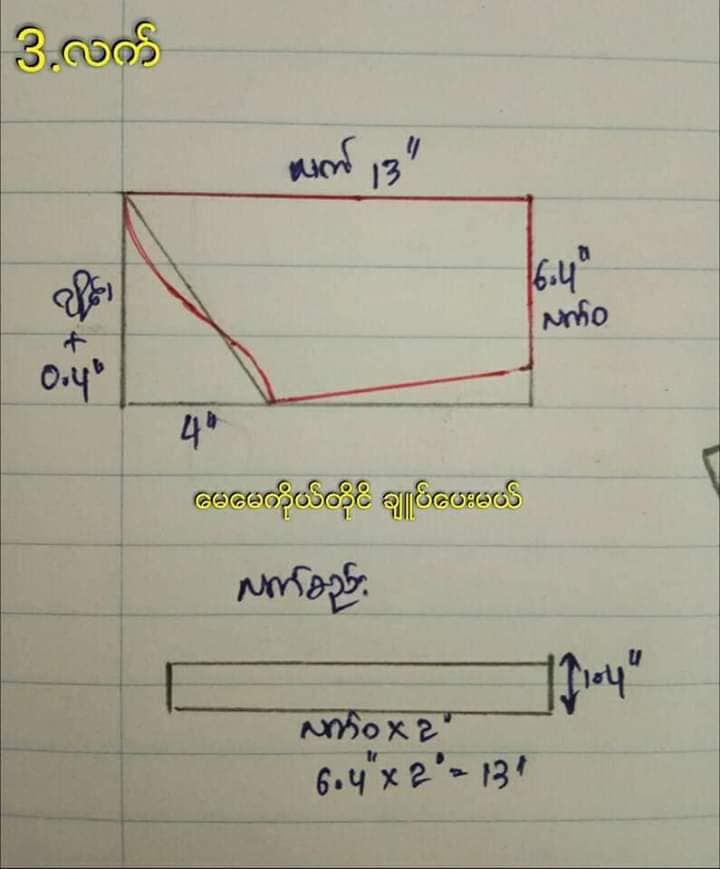 3.လက်
လက် 13"
6.4"
လက်ဝ
ချိုင်း
+
0.4"
4"
မေမေကိုယ်တိုင် ချူပ်ပေးမယ်
လက်စည်း
1.4"
လက်ဝ x 2"
6.4" x 2" = 13"